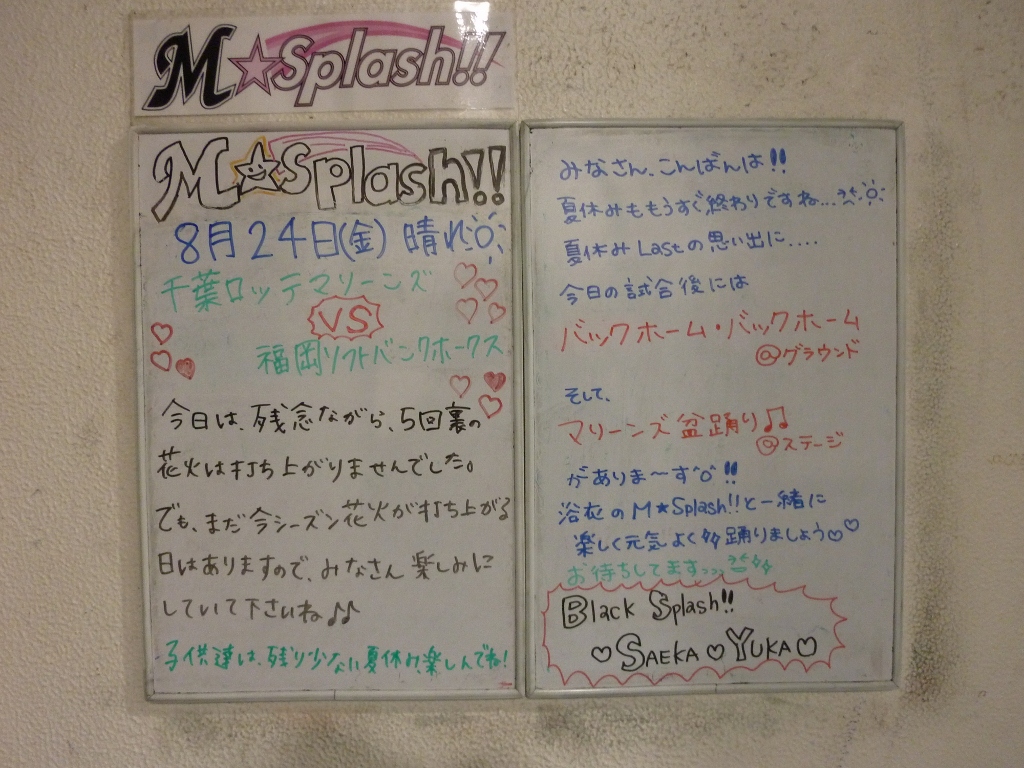 M☆Splash!!
M☆Splash!!
8月24日(金) 晴れ
千葉ロッテマリーンズ
VS
福岡ソフトバンクホークス
今日は、残念ながら、5回裏の
花火は打ち上がりませんでした。
でも、まだ今シーズン花火が打ち上がる
日はありますので、みなさん楽しみに
していて下さいね♪♪
子供達は、残り少ない夏休み楽しんでね!
みなさん、こんばんは!!
夏休みももうすぐ終わりですね...
夏休みLastの思い出に....
今日の試合後には
バックホーム・バックホーム
@グラウンド
そして、
マリーンズ盆踊り♫
@ステージ
がありま〜す^o^!!
浴衣のM★Splash!!と一緒に
楽しく元気よく踊りましょう♡♡
お待ちしてます
Black Splash!!
♡SAEKA♡YUKA♡